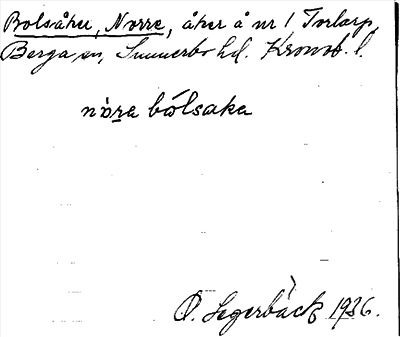 Bolsåker, Norre, åker å nr 1 Torlarp,
Berga sn, Sunnerbo hd. Kronob. l.
nòra bólsaka
O. Segerbäck 1936.